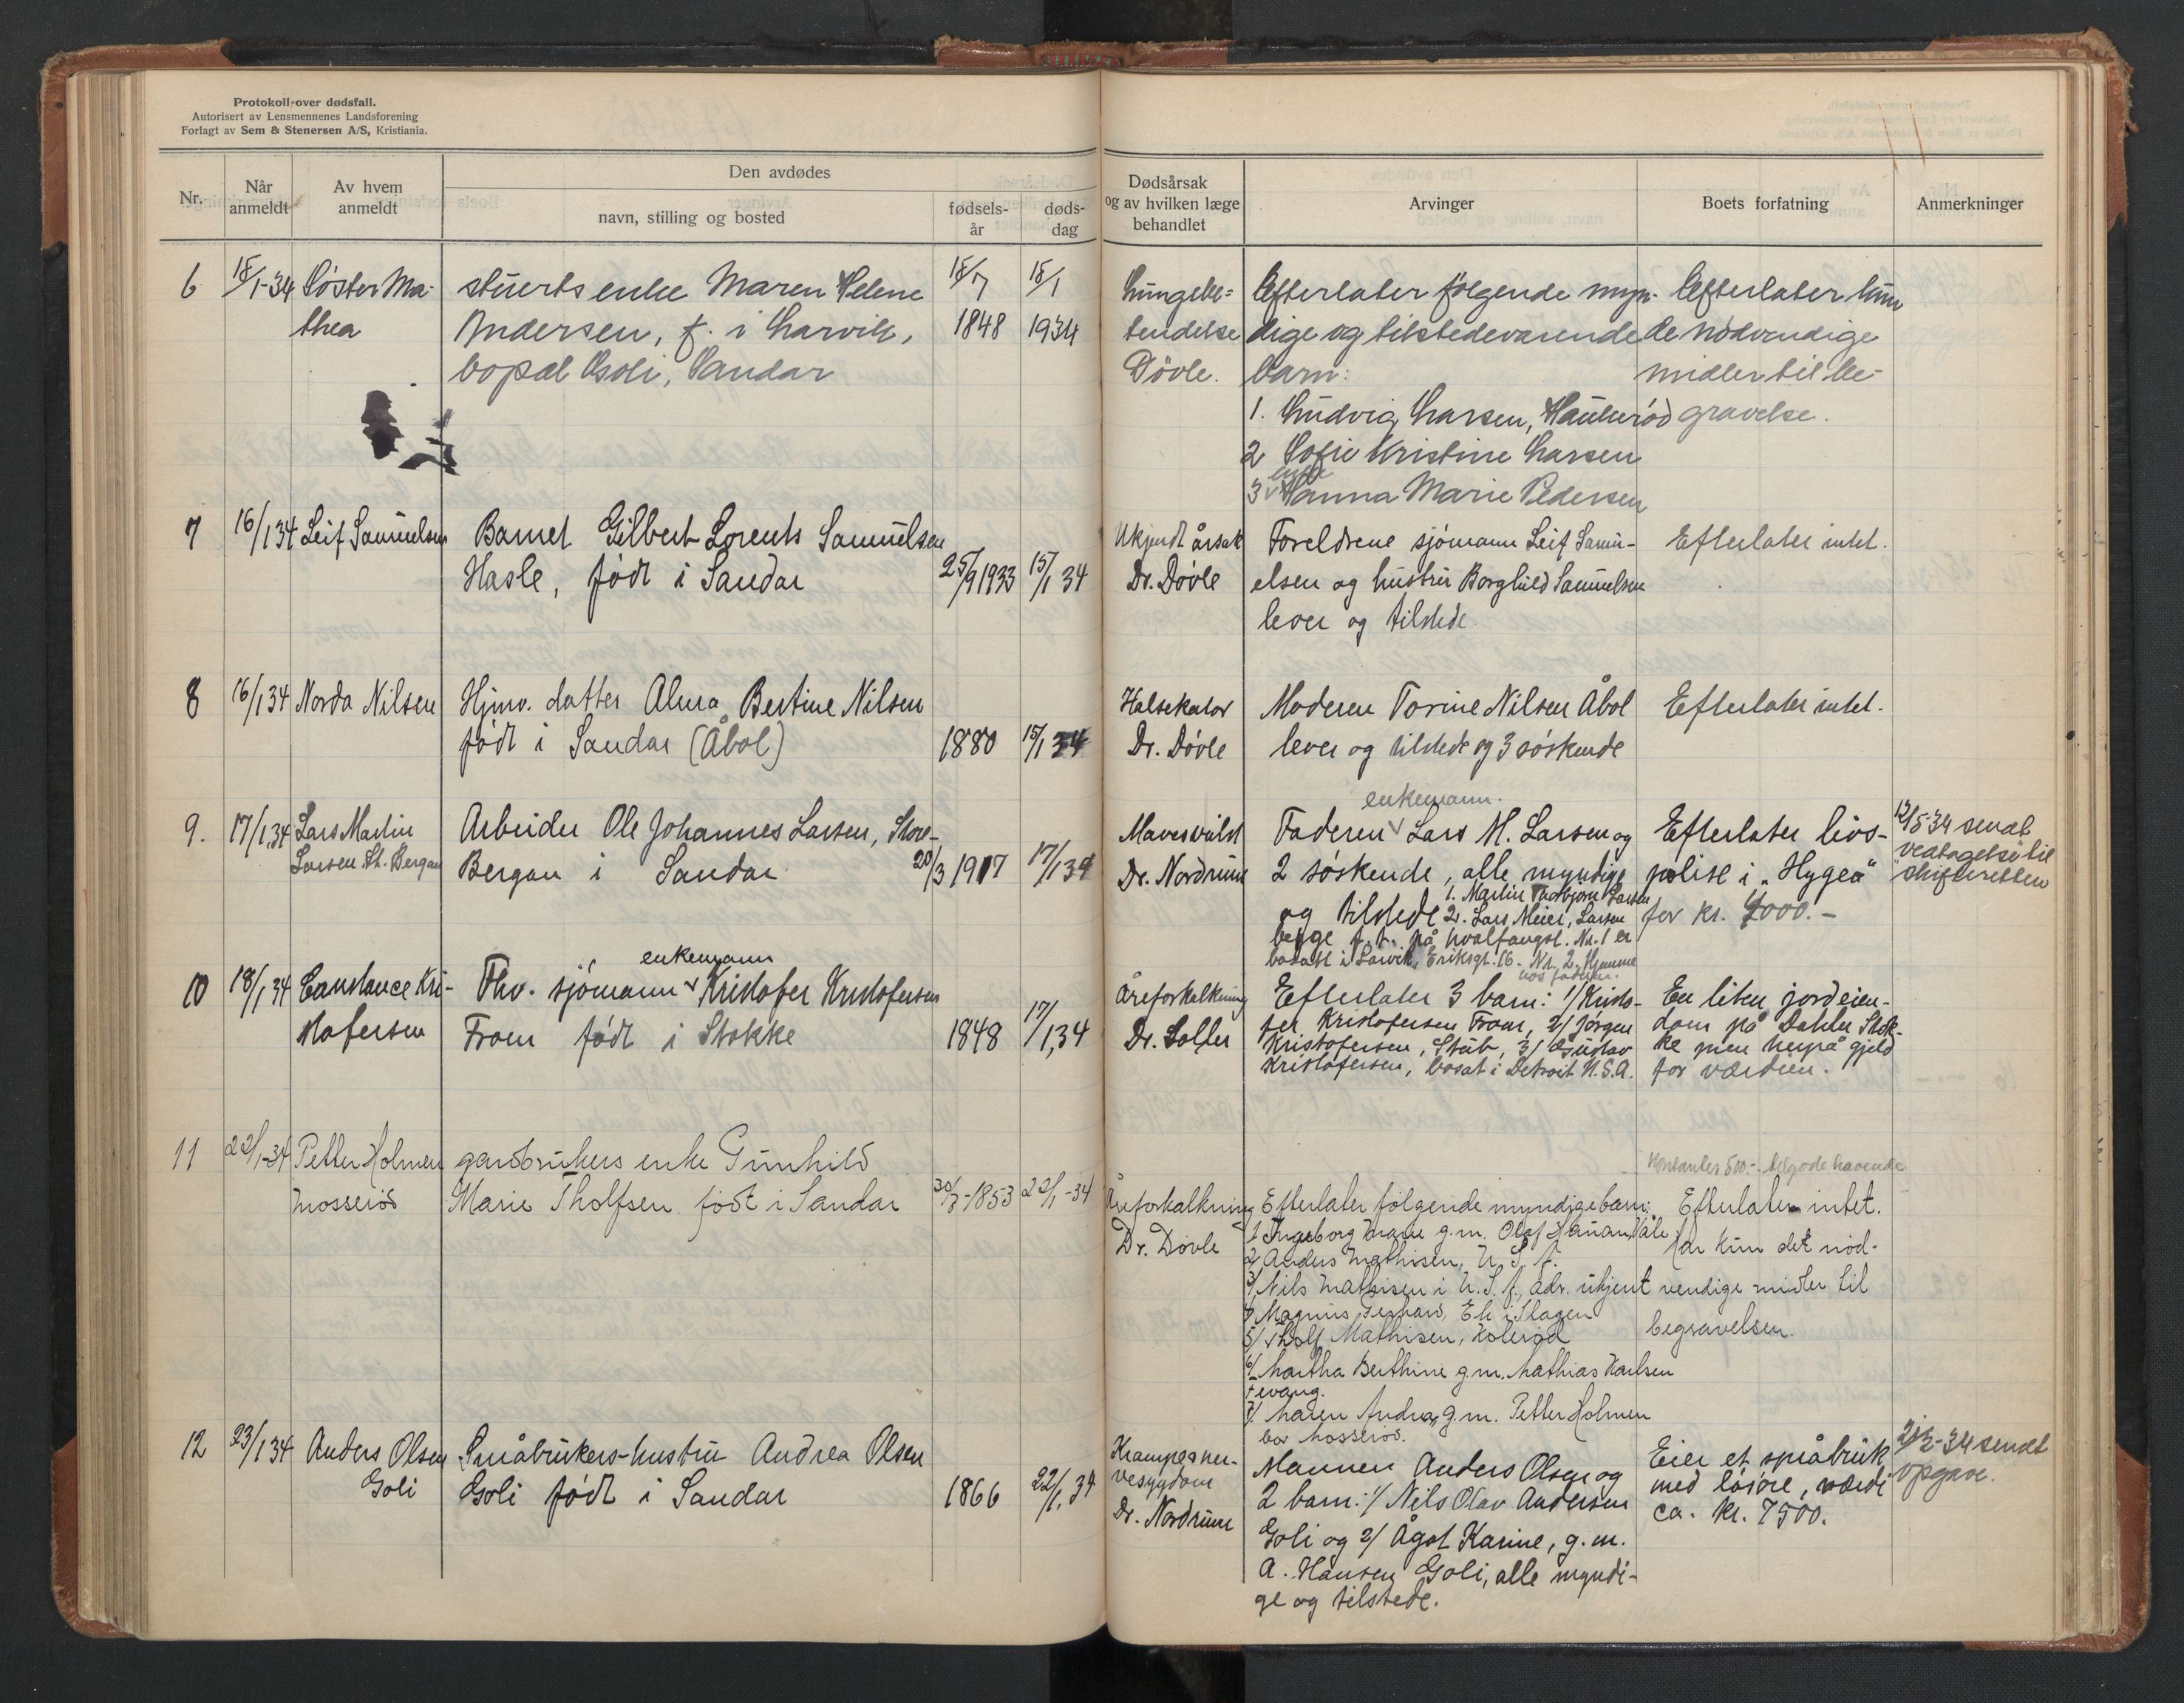 Protokoll over dødsfall.
Autorisert av Lensmennenes Landsforening
Forlagt av Sem & Stenersen A/S, Kristiania.
Nr.
Når
anmeldt
Av hvem
anmeldt
Den avdødes
navn, stilling og bosted
fødsels-
år
døds-
dag
Dødsårsak
og av hvilken læge
behandlet
Arvinger
Boets forfatning
Anmerkninger
6
15/1-34
Søster Ma-
thea
stuerts enke Maren Helene
Andersen, f. i Larvik,
bopæl Goli, Sandar
15/7
1848
15/1
1934
Lungebe-
tendelse
Døvle.
Efterlater følgende myn-
dige og tilstedeværende
barn:
1. Ludvig Larsen, Haukerød
2 Sofie Kristine Larsen
enke
3 Hanna Marie Pedersen
Efterlater kun
de nødvendige
midler til be-
gravelse.
7
16/1 34
Leif Samuelsen
Barnet Gilbert Lorents Samuelsen
Hasle, født i Sandar
25/9 1933
15/1 34
Ukjendt årsak
Dr. Døvle
Foreldrene sjømann Leif Samu-
elsen og hustru Borghild Samuelsen
lever og tilstede.
Efterlater intet.
8
16/1 34
Norda Nilsen
Hjmv. datter Alma Bertine Nilsen
født i Sandar (Åbol)
1880
15/1 34
Halsekatar
Dr. Døvle
Moderen Torine Nilsen Åbol
lever og tilstede og 3 søskende
Efterlater intet.
9.
17/1 34
Lars Martin
Larsen St. Bergan
Arbeider Ole Johannes Larsen, Stor-
Bergan i Sandar
20/3 1917
17/1 34
Mavesvulst
Dr. Nordrum
enkemann.
Faderen Lars M. Larsen og
2 søskende, alle myndige
og tilstede 1. Martin Thorbjørn Larsen
2. Lars Meier, Larsen
begge p.t. på hvalfangst. Nr. 1 er
bosatt i Larvik, Eriksgt. 16. Nr. 2. Hjemme
hos faderen.
Efterlater livs-
polise i "Hygea"
for kr. 4000.-
12/5 34 sendt
vedtagelse til
skifteretten
10
18/1 34
Constance Kri-
stofersen
enkemann
Fhv. sjømann Kristofer Kristofersen
Fraen født i Stokke
1848
17/1 34
Åreforkalkning
Dr. Solfer
Efterlater 3 barn: 1/ Kristo-
fer Kristofersen Fraen, 2/ Jørgen
Kristofersen, Stub, 3/ Gustav
Kristofersen, bosat i Detroit U.S.A.
En liten jordeien-
dom på Dahler Stok-
ke men herpå gjeld
for værdien.
11
22/1-34
Petter Holmen
Mosserød
gardbrukers enke Gunhild
Marie Tholfsen født i Sandar
30/3-1853
22/1-34
Åreforkalkning
Dr. Døvle
Efterlater følgende myndige barn:
1 Ingeborg Marie g.m. Olaf Hanan, Våle
2/ Anders Mathisen, U.S.A.
3/ Nils Mathisen i U.S.A., adr. ukjent
4 Magnus Gerhard, Ek i Slagen
5/ Tholf Mathisen, Kolerød
6/ Martha Berthine g.m. Mathias Karlsen
Fevang.
7/ Maren Andrea, g.m. Petter Holmen
bor Mosserød.
Kontanter 500.- tilgodehavende
Efterlater intet.
Har kun det nød-
vendige midler til
begravelsen.
12
23/1 34
Anders Olsen
Goli
Småbrukers-hustru Andrea Olsen
Goli født i Sandar
1866
22/1 34
Krampe & ner-
vesygdom
Dr. Nordrum
Mannen Anders Olsen og
2 barn: 1/ Nils Olav Andersen
Goli og 2/ Ågot Karine, g.m.
A. Hansen Goli, alle myndi-
ge og tilstede.
Eier et småbruk
med løsøre, værdi
ca. kr. 7500.
2-34 sendt
opgave.